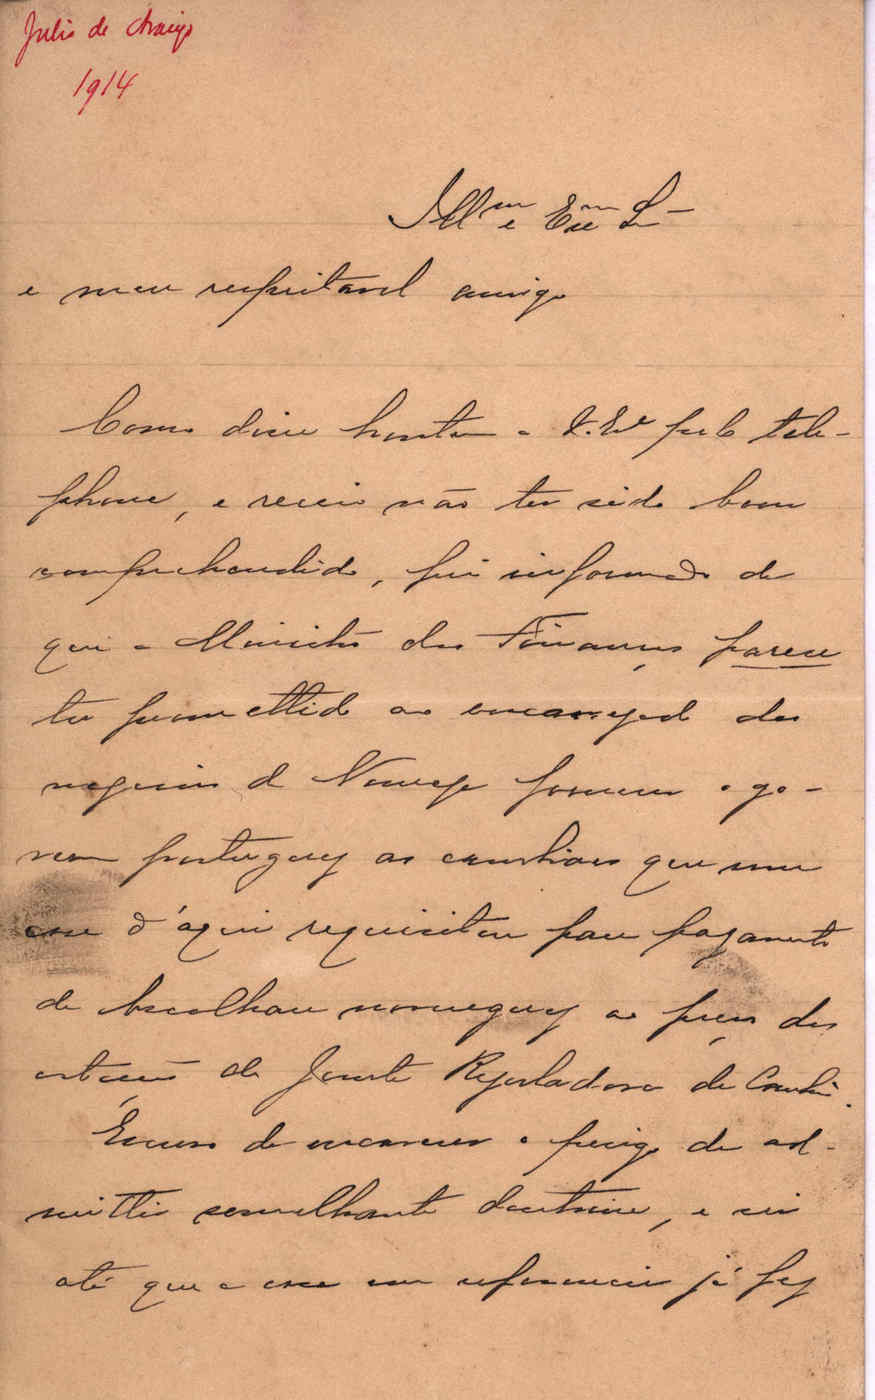 Julio de Araujo
1914
Illmo e Exmo Sr
e meu respeitavel amigo
Como disse hontem a V. Exa pelo tele-
phone, e receio não ter sido bem
comprehendido, fui informado de
que o Ministro das Finanças parece
ter promettido ao encarregado dos
negocios da Noruega fornecer o go-
verno portuguez as cambiaes que uma
casa d'aqui requisitou para pagamento
de bacalhau norueguez ao preço das
cotações da Junta Reguladora de Cambios.
Escuso de encarecer o perigo de ad-
mittir semelhante doutrina, e sei
até que a casa em referencia já fez